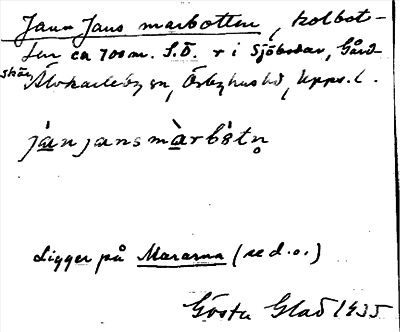 Jann Jans marbotten, kolbot-
ten ca 700 m. S.O. r i Sjöbodar, Gård-
skär, Älvkarleby sn, Örbyhus hd, Upps. l.
jànjansmàrbåtn̥
Ligger på Mararna (se d.o.)
Gösta Glad 1935